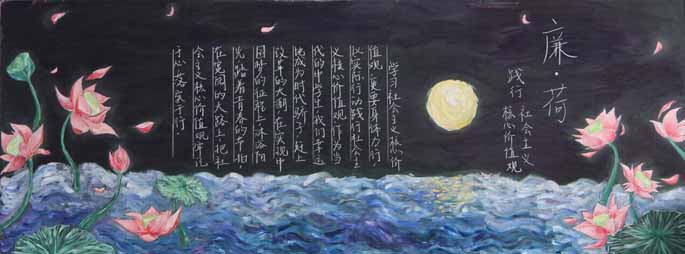 廉·荷
践行 社会主义
核心价值观
学习社会主义核心价
值观,更要身体力行
以实际行动践行社会主
义核心价值观,作为当
代的中学生,我们幸运
地成为时代骄子,赶上
改革的大潮,在实现中
国梦的征程上,沐浴阳
光,踏着青春的节拍,
在宽阔的大路上,把社
会主义核心价值观牢记
于心、落实于行